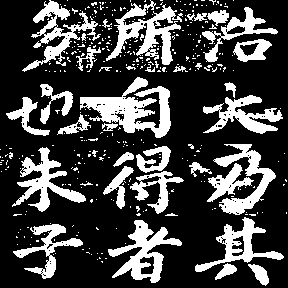 浩大乃其
所自得者
多也朱子